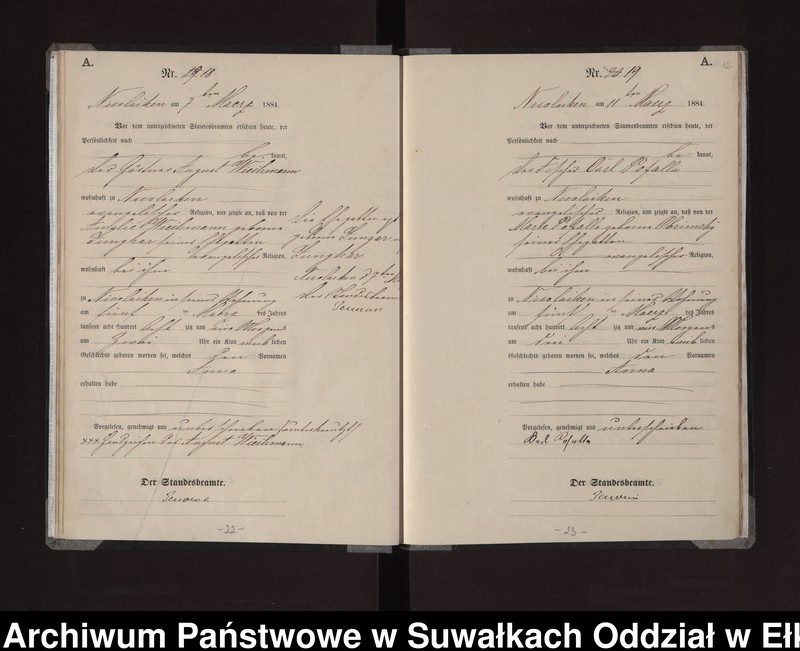 A.
Nr. 18
Nicolaiken am 7 ten Maerz 1884.
Vor dem unterzeichneten Standesbeamten erschien heute, der
Persönlichkeit nach
be kannt,
der Gärtner August Wiechmann
wohnhaft zu Nicolaiken
evangelischer Religion, und zeigte an, daß von der
Wiechmann geborne
Jungkar seiner Ehegattin
evangelischer Religion
wohnhaft bei ihm
zu Nicolaiken in seiner Wohnung
am fünf ten Maerz des Jahres
tausend acht hundert acht zig und vier Morgens
um Uhr ein Kind weib lichen
Geschlechts geboren worden sei, welches den Vornamen
Anna
erhalten habe
Vorgelesen, genehmigt und unterschrieben
XXX Handzeichen des August Wiechmann
Der Standesbeamte.
-22-
Die Ehegattin ist
geborne Jungar
Jungkar.
Nicolaiken d 7
der Standesbeamte
A.
12.
Nr. 19
Nicolaiken am 11 ten Maerz 1884.
Vor dem unterzeichneten Standesbeamten erschien heute, der
Persönlichkeit nach
be kannt,
der Fischer Carl Pofalla
wohnhaft zu Nicolaiken
evangelischer Religion, und zeigte an, daß von der
Marie Pofalla geborne
seiner Ehegattin
evangelischer Religion,
wohnhaft bei ihm
zu Nicolaiken in seiner Wohnung
am fünf ten Maerz des Jahres
tausend acht hundert acht zig und vier Morgens
um drei Uhr ein Kind weib lichen
Geschlechts geboren worden sei, welches den Vornamen
Anna
erhalten habe
Vorgelesen, genehmigt und unterschrieben
Pofalla
Der Standesbeamte.
-23-
Archiwum Państwowe w Suwałkach Oddział w Ełk